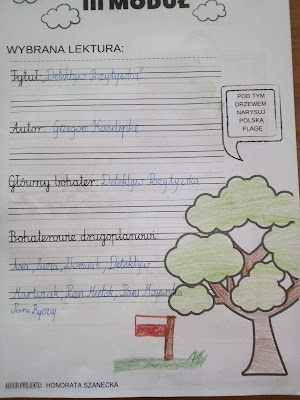 III MODUŁ
WYBRANA LEKTURA:
Tytuł: „Detektyw Pozytywka"
POD TYM
DRZEWEM
NARYSUJ
POLSKĄ
FLAGĘ
Autor: Grzegorz Kasdepke
Główny bohater: Detektyw Pozytywka
Bohaterowie drugoplanowi:
Zuzia, Dominik, Detektyw
Martwiak, Pan Mietek, Pani Majewska
Pani Ryczaj
AUTOR PROJEKTU: HONORATA SZANECKA